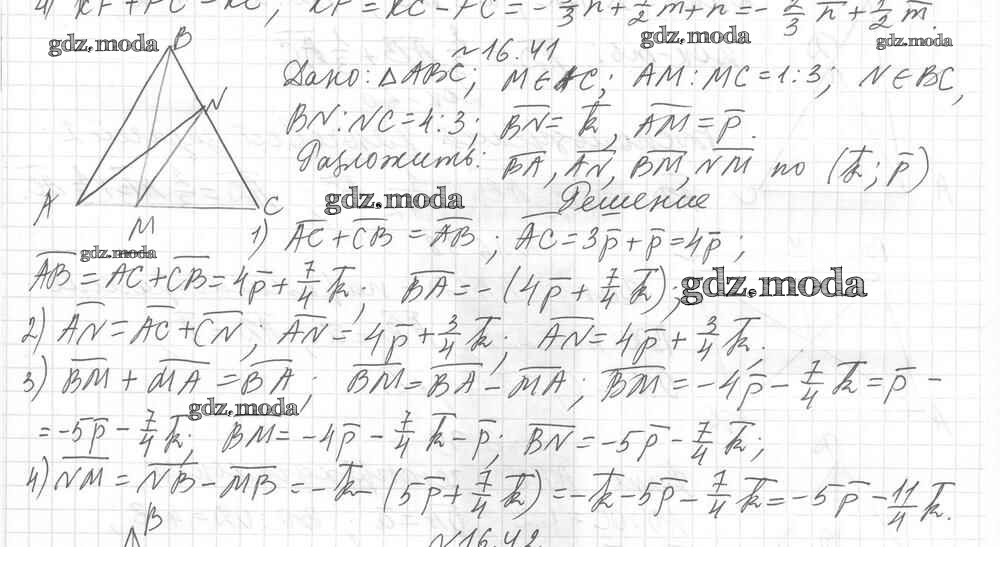 4) K̅F̅ + F̅C̅ = K̅C̅; K̅F̅ = K̅C̅ - F̅C̅ = -5/3 n̅ + 1/2 m̅ + n̅ = -2/3 n̅ + 1/2 m̅.
gdz.moda
gdz.moda
gdz.moda
B
№16.41
Дано: △ABC; M∈AC; AM:MC=1:3; N∈BC,
N
BN:NC=4:3; B̅N̅ = k̅, A̅M̅ = p̅.
Разложить: B̅A̅, A̅N̅, B̅M̅, N̅M̅ по (k̅; p̅)
A
M
C
gdz.moda
Решение
1) A̅C̅ + C̅B̅ = A̅B̅; A̅C̅ = 3p̅ + p̅ = 4p̅;
gdz.moda
A̅B̅ = A̅C̅ + C̅B̅ = 4p̅ + 7/4 k̅; B̅A̅ = -(4p̅ + 7/4 k̅);
gdz.moda
2) A̅N̅ = A̅C̅ + C̅N̅; A̅N̅ = 4p̅ + 3/4 k̅; A̅N̅ = 4p̅ + 3/4 k̅.
3) B̅M̅ + M̅A̅ = B̅A̅; B̅M̅ = B̅A̅ - M̅A̅; B̅M̅ = -4p̅ - 7/4 k̅ = p̅ -
gdz.moda
= -5p̅ - 7/4 k̅; B̅M̅ = -4p̅ - 7/4 k̅ - p̅; B̅N̅ = -5p̅ - 7/4 k̅;
4) N̅M̅ = N̅B̅ - M̅B̅ = -k̅ - (5p̅ + 7/4 k̅) = -k̅ - 5p̅ - 7/4 k̅ = -5p̅ - 11/4 k̅.
B
№16.42